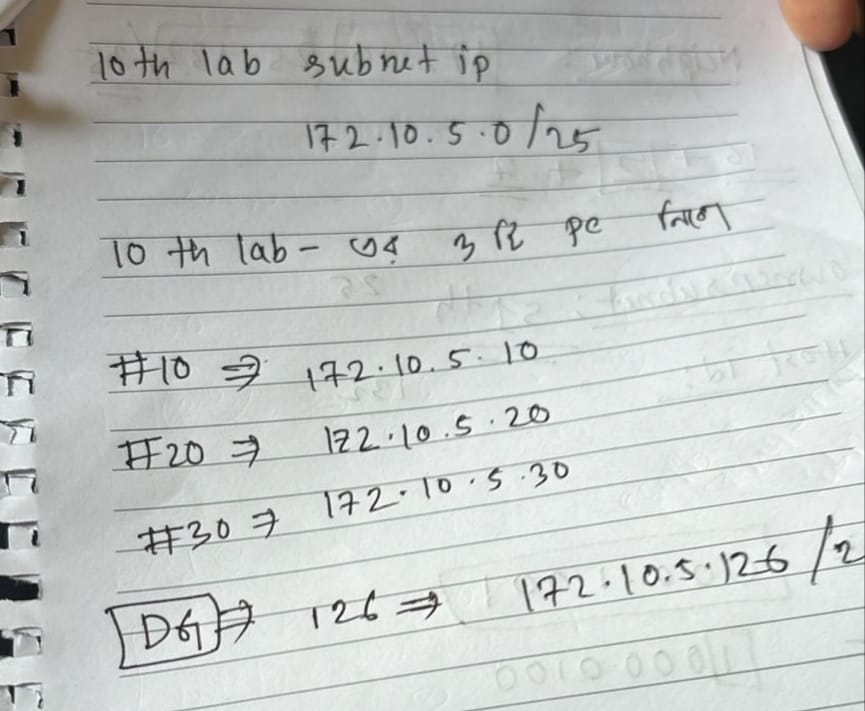 10th lab subnet ip
172.10.5.0/25
10 th lab - এর ৩ টি pc নিলে
#10 ⇒ 172.10.5.10
#20 ⇒ 172.10.5.20
#30 ⇒ 172.10.5.30
DG ⇒ 126 ⇒ 172.10.5.126 /2